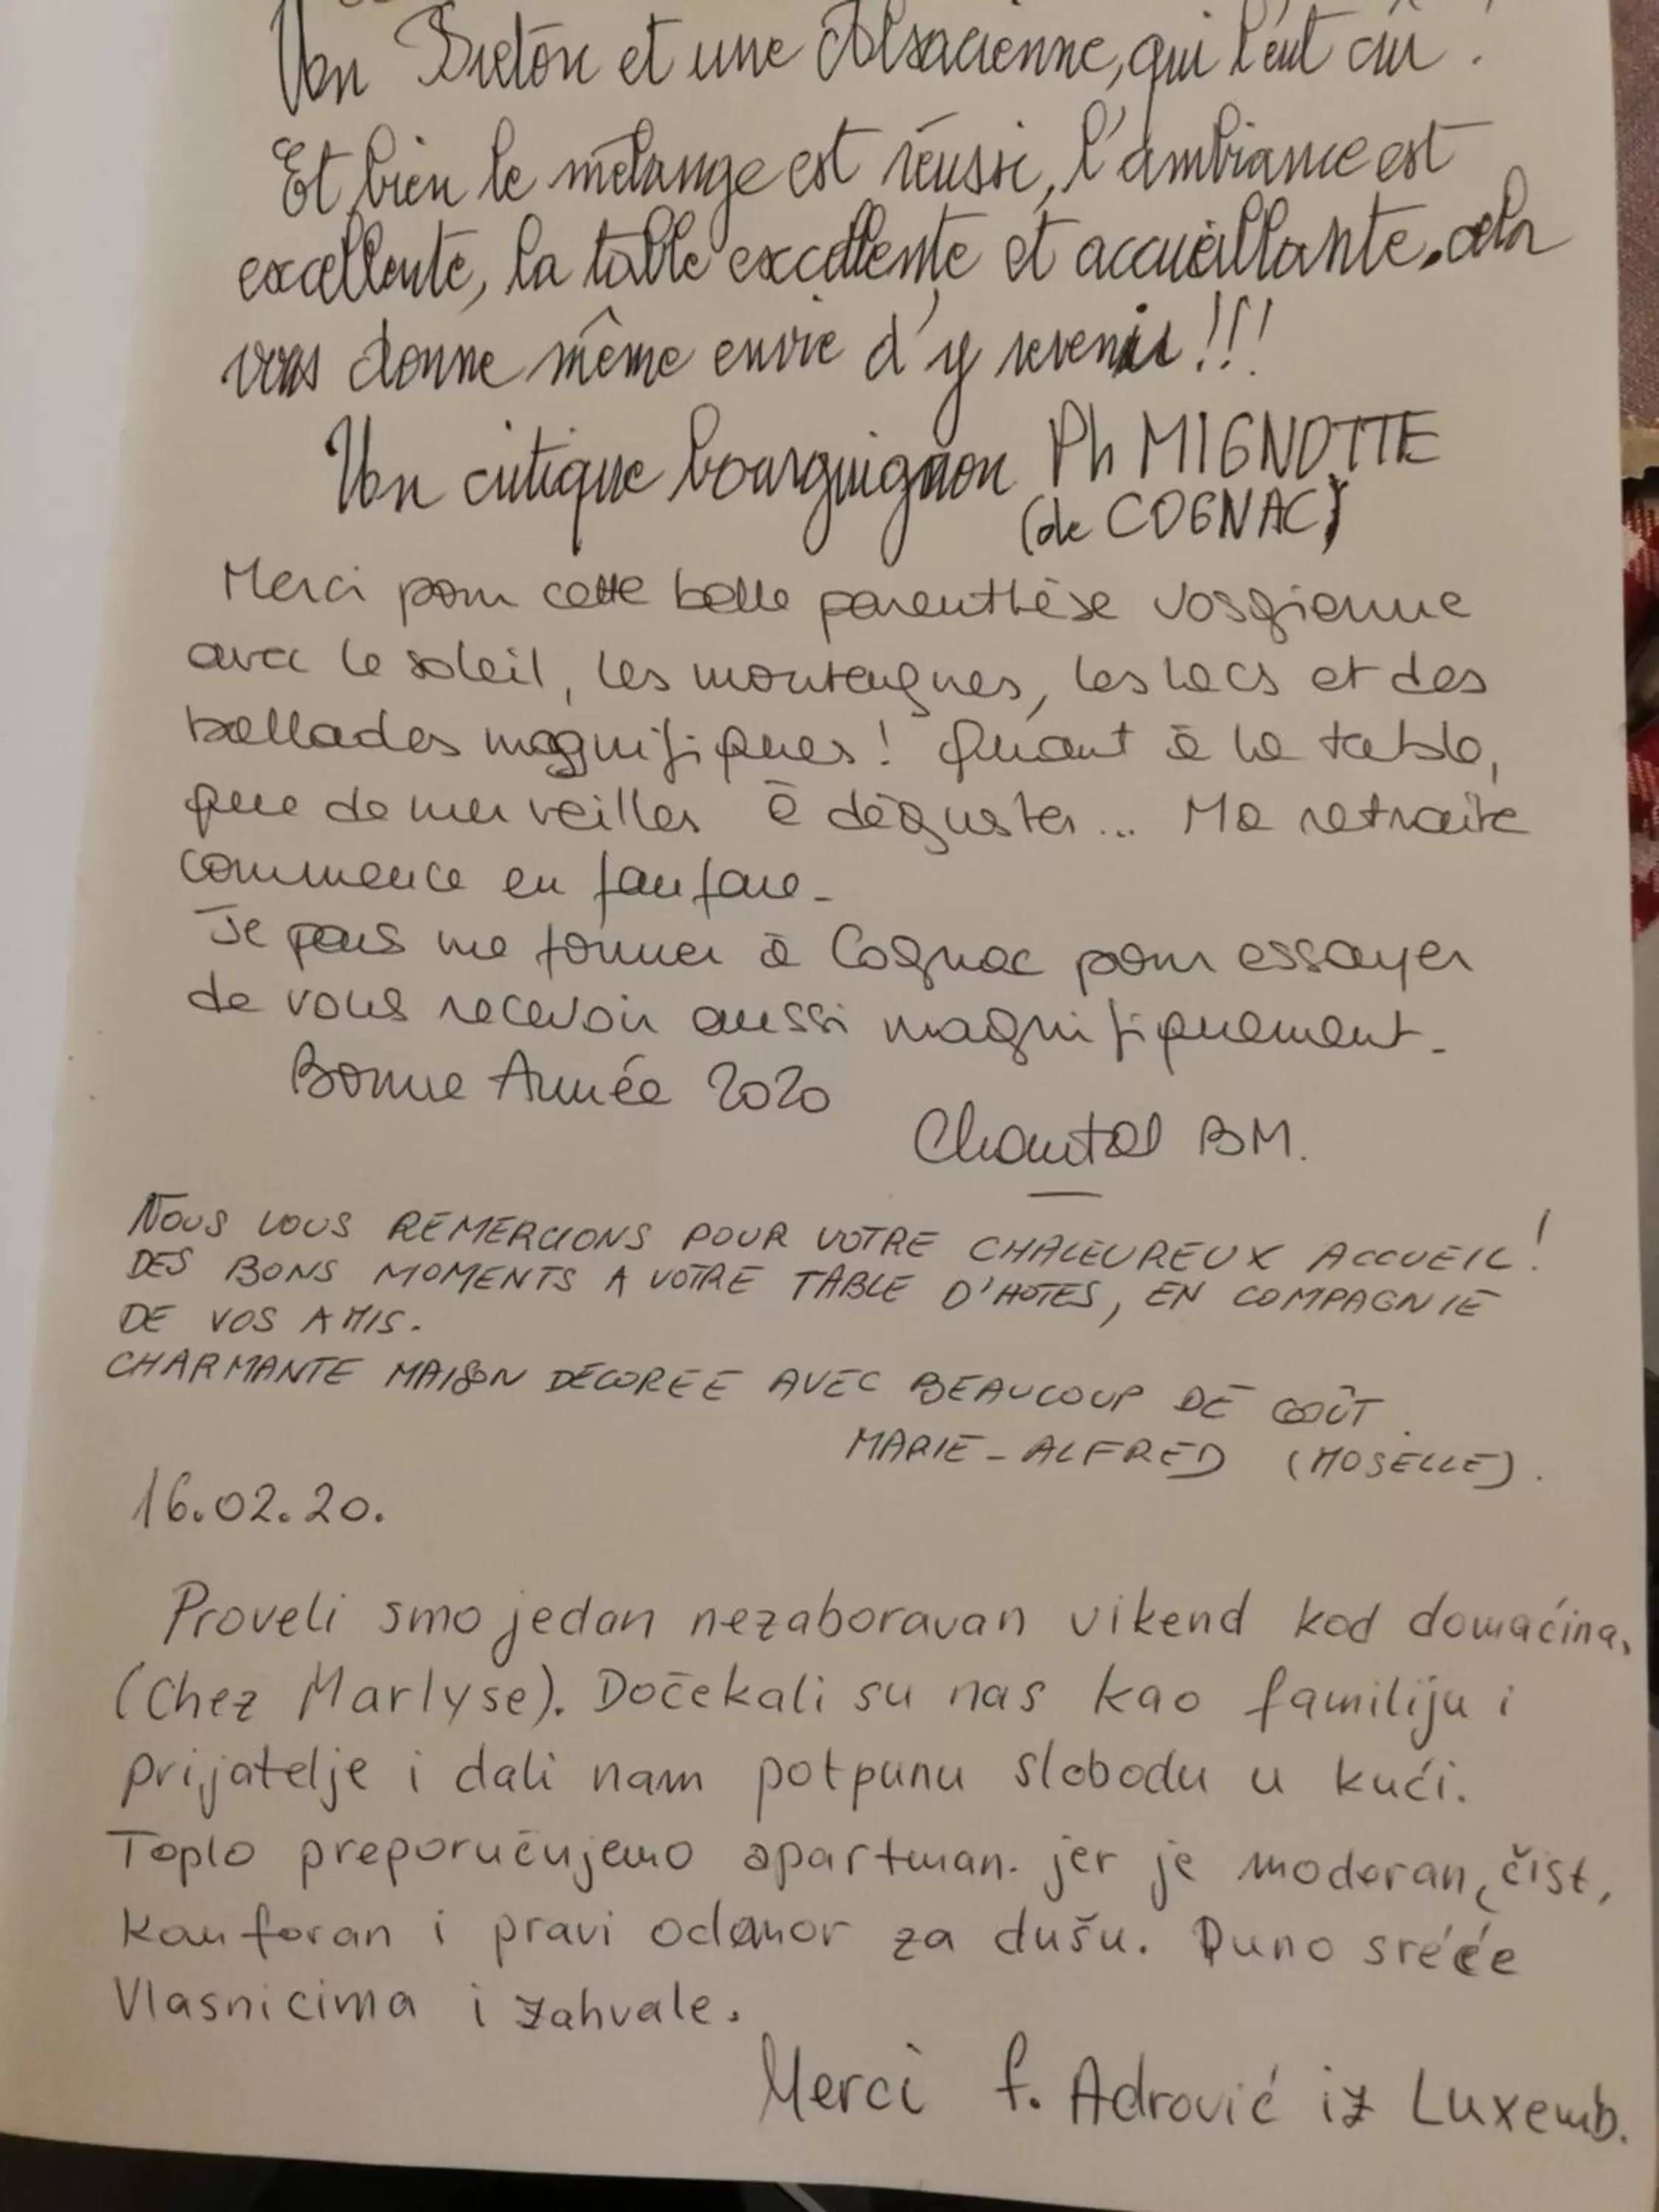 Un Breton et une Alsacienne, qui l'eut cru !
Et bien le mélange est réussi, l'ambiance est
excellente, la table excellente et accueillante, cela
vous donne même envie d'y revenir !!!
Un critique bourguignon Ph MIGNOTTE
(de COGNAC)
Merci pour cette belle parenthèse vosgienne
avec le soleil, les montagnes, les lacs et des
ballades magnifiques ! Quant à la table,
que de merveilles à déguster... Ma retraite
commence en fanfare -
Je pars me former à Cognac pour essayer
de vous recevoir aussi magnifiquement -
Bonne Année 2020
Chantal BM.
NOUS VOUS REMERCIONS POUR VOTRE CHALEUREUX ACCUEIL !
DES BONS MOMENTS A VOTRE TABLE D'HÔTES, EN COMPAGNIE
DE VOS AMIS.
CHARMANTE MAISON DÉCORÉE AVEC BEAUCOUP DE GOÛT.
MARIE - ALFRED (MOSELLE).
16.02.20.
Proveli smo jedan nezaboravan vikend kod domaćina,
(Chez Marlyse). Dočekali su nas kao familiju i
prijatelje i dali nam potpunu slobodu u kući.
Toplo preporučujemo apartman. jer je moderan, čist,
Konforan i pravi odomor za dušu. Puno sreće
Vlasnicima i zahvale.
Merci f. Adrović iz Luxemb.